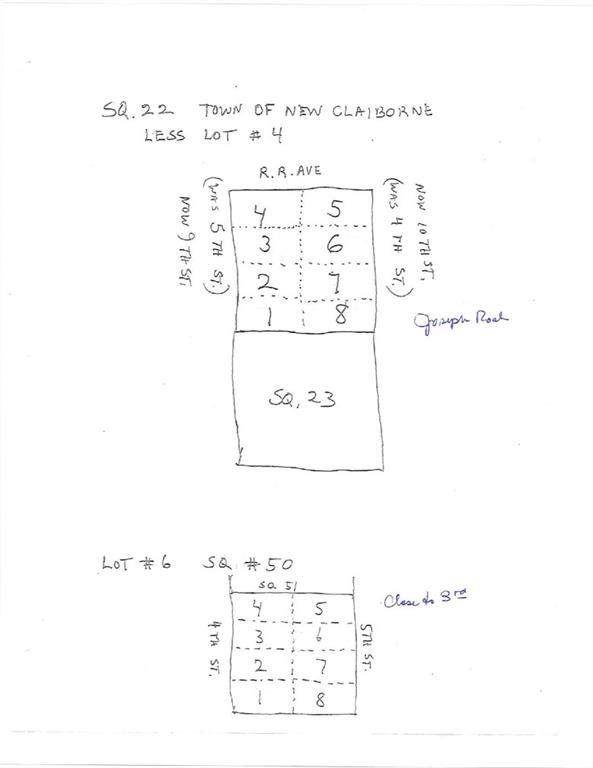 SQ. 22 TOWN OF NEW CLAIBORNE
LESS LOT # 4
R.R. AVE
NOW 9TH ST.
(WAS 5TH ST.)
4 5
3 6
2 7
1 8
(WAS 4TH ST.)
NOW 10TH ST.
Joseph Road
SQ. 23
LOT #6 SQ. #50
SQ. 51
4TH ST.
4 5
3 6
2 7
1 8
5TH ST.
Close to 3rd